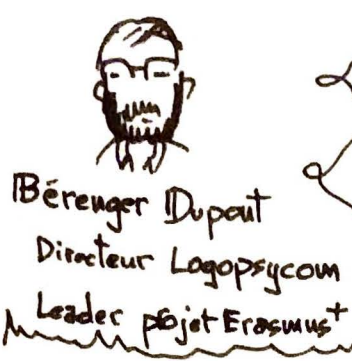 Bérenger Dupont
Directeur Logopsycom
Leader projet Erasmus+